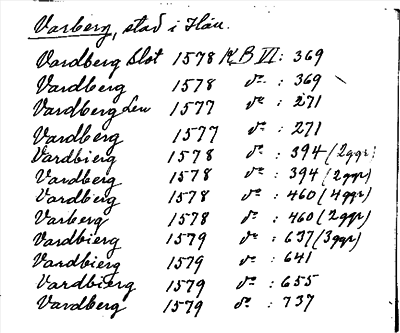 Varberg, stad i Hall.
Vardberg Slot 1578 K.B.VI: 369
Vardberg 1578 do : 369
Vardberg Len 1577 do : 271
Vardberg 1577 do : 271
Vardbierg 1578 do : 394 (2 ggr)
Vardberg 1578 do : 394 (2 ggr)
Vardbierg 1578 do : 460 (4 ggr)
Varberg 1578 do : 460 (2 ggr)
Vardbierg 1579 do : 637 (3 ggr)
Vardbierg 1579 do : 641
Vardbierg 1579 do : 655
Vardberg 1579 do : 737